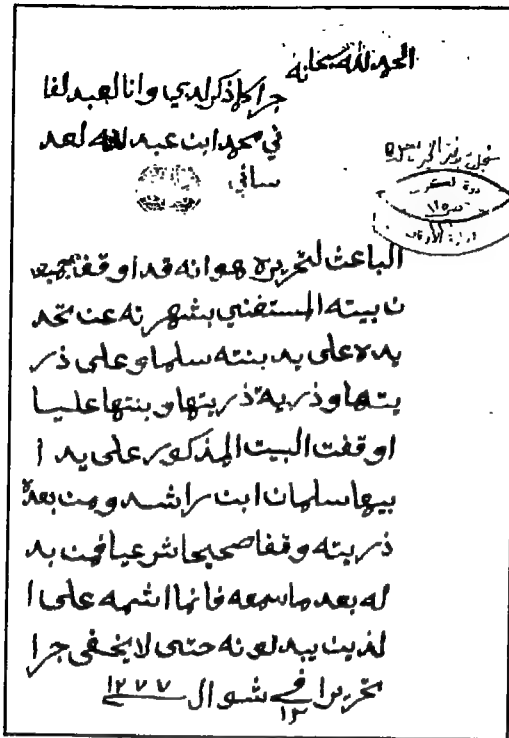 الحمد لله سبحانه
جرا كما ذكر لدي وانا العبد لفا
ني محمد ابن عبد لله لعد
ساني
دولة لكويت
وزارة الأوقاف
الباعث لتحريره هو انه قد اوقف
ن بيته المستغني بشهرته عن تحد
يده على يد بنته سلما وعلى ذر
يتها وذرية ذريتها وبنتها عليا
اوقفت البيت المذكور على يد ا
بيها سلمان ابن راشد ومن بعده
ذريته وقفا صحيحا شرعيا فمن بد
له بعد ما سمعه فانما اثمه على ا
لذين يبدلونه حتى لا يخفى جرا
تحريرا في ١٢ شوال ١٢٧٧